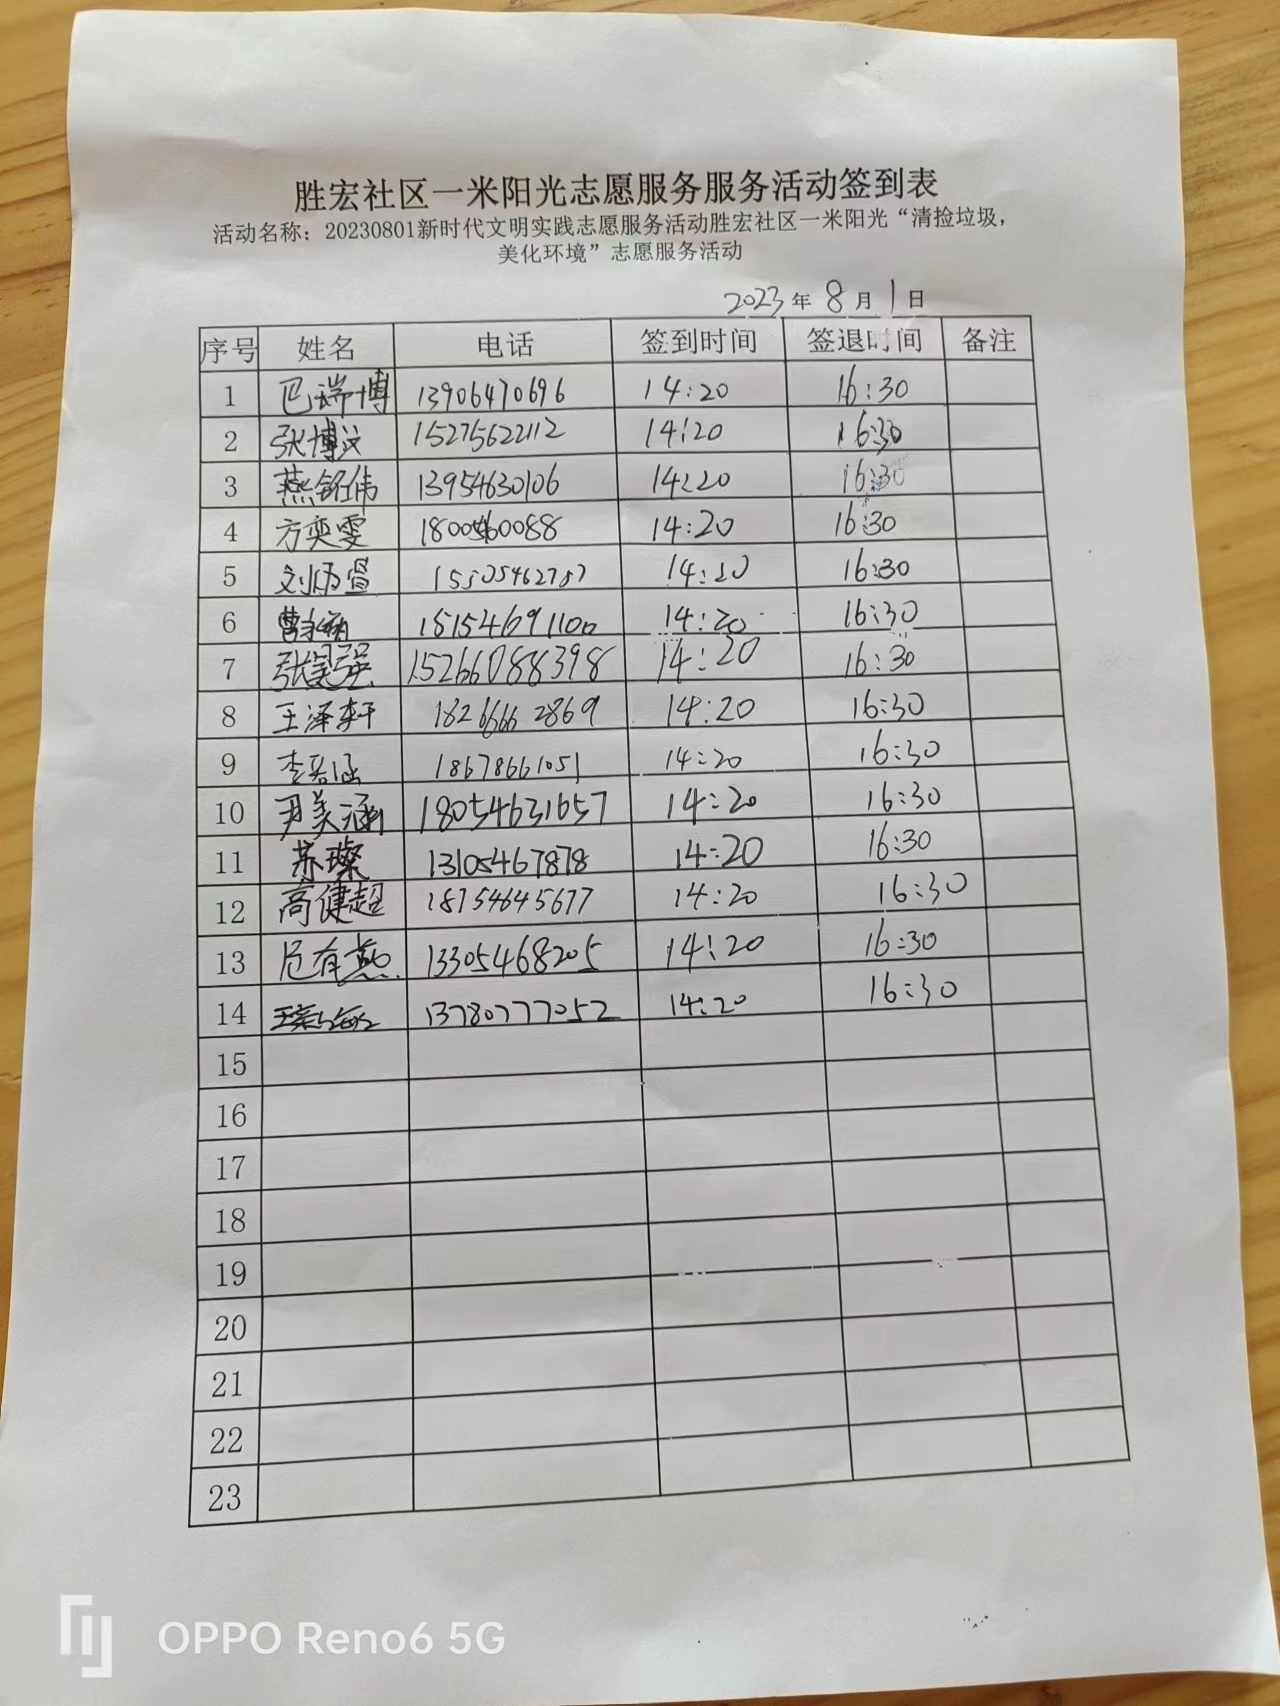 胜宏社区一米阳光志愿服务服务活动签到表
活动名称：20230801新时代文明实践志愿服务活动胜宏社区一米阳光“清捡垃圾，
美化环境”志愿服务活动
2023年 8月 1日
序号 姓名 电话 签到时间 签退时间 备注
1 巴瑞博 13906470696 14:20 16:30
2 张博文 15275622112 14:20 16:30
3 燕钰伟 13954630106 14:20 16:30
4 方奕雯 14:20 16:30
5 15505462787 14:20 16:30
6 18154691100 14:20 16:30
7 15266088398 14:20 16:30
8 王泽轩 18266662869 14:20 16:30
9 李若涵 18678661051 14:20 16:30
10 尹美涵 18054631657 14:20 16:30
11 苏璨 13105467878 14:20 16:30
12 高健超 18754645677 14:20 16:30
13 尼有燕 13305468205 14:20 16:30
14 13780777052 14:20 16:30
15
16
17
18
19
20
21
22
23
OPPO Reno6 5G